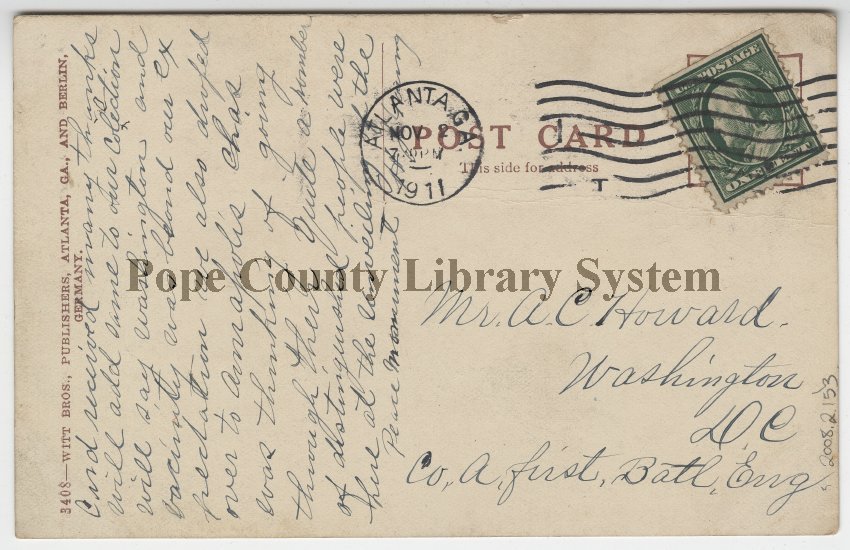 3408—WITT BROS., PUBLISHERS, ATLANTA, GA., AND BERLIN,
GERMANY.
Card received many thanks
will add same to our colection
will say washington and
vacinity was beond our ex
pectation we also droped
over to annapolis Chas
was thinking of going
through there Quite a nomber
of distinguished people were
here at the unveiling of the
Peace monument
ATLANTA, GA.
NOV 2
7-30PM
1911
POST CARD
This side for address
U.S. POSTAGE
ONE CENT
Pope County Library System
Mr. A. C Howard.
Washington
D.C
Co, A, first, Batl, Eng
2008.2153